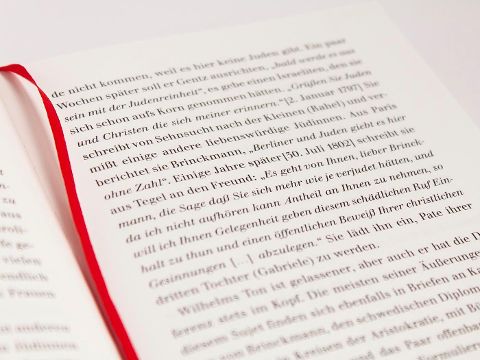 fe ge-
vielen
endlich
Frauen
de nicht kommen, weil es hier keine Juden gibt. Ein paar
Wochen später soll er Gentz ausrichten, „bald werde es aus
sein mit der Judenreinheit“, es gebe einen Israeliten, den sie
sich schon aufs Korn genommen hätten. „Grüßen Sie Juden
und Christen die sich meiner erinnern.“ [2. Januar 1797] Sie
schreibt von Sehnsucht nach der Kleinen (Rahel) und ver-
mißt einige andere liebenswürdige Jüdinnen. Aus Paris
berichtet sie Brinckmann, „Berliner und Juden giebt es hier
ohne Zahl“. Einige Jahre später [30. Juli 1802] schreibt sie
aus Tegel an den Freund: „Es geht von Ihnen, lieber Brinck-
mann, die Sage daß Sie sich mehr wie je verjudet hätten, und
da ich nicht aufhören kann Antheil an Ihnen zu nehmen, so
will ich Ihnen Gelegenheit geben diesem schädlichen Ruf Ein-
halt zu thun und einen öffentlichen Beweiß Ihrer christlichen
Gesinnungen [...] abzulegen.“ Sie lädt ihn ein, Pate ihrer
dritten Tochter (Gabriele) zu werden.
Wilhelms Ton ist gelassener, aber auch er hat die D
ferenz stets im Kopf. Die meisten seiner Äußerunge
diesem Sujet finden sich ebenfalls in Briefen an Ka
von Brinckmann, den schwedischen Diplom
der Aristokratie, mit
das Paar